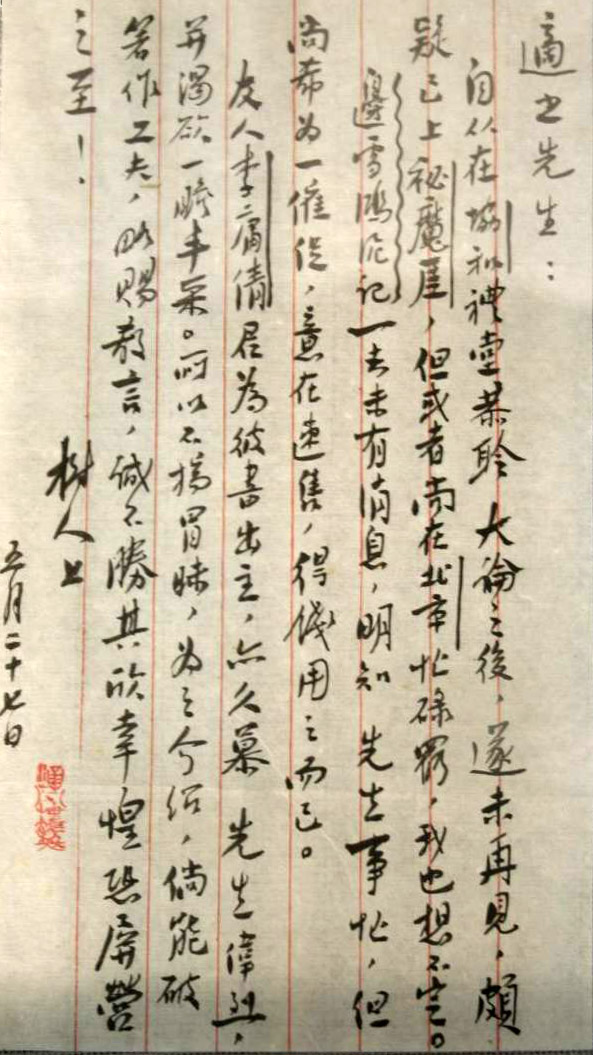 適之先生：
自从在協和禮堂恭聆 大論之後，遂未再見，頗
疑已上祕魔厓，但或者尚在北京忙碌罷，我也想不定。
邊雪鴻泥記一去未有消息，明知 先生事忙，但
尚希為一催促，意在速售，得錢用之而已。
友人李庸倩君為彼書出主，亦久慕 先生偉烈，
并渴欲一瞻丰采。所以不揣冒昧，為之介绍，倘能破
著作工夫，略賜教言，誠不勝其欣幸惶恐屏營
之至！
樹人上
五月二十七日